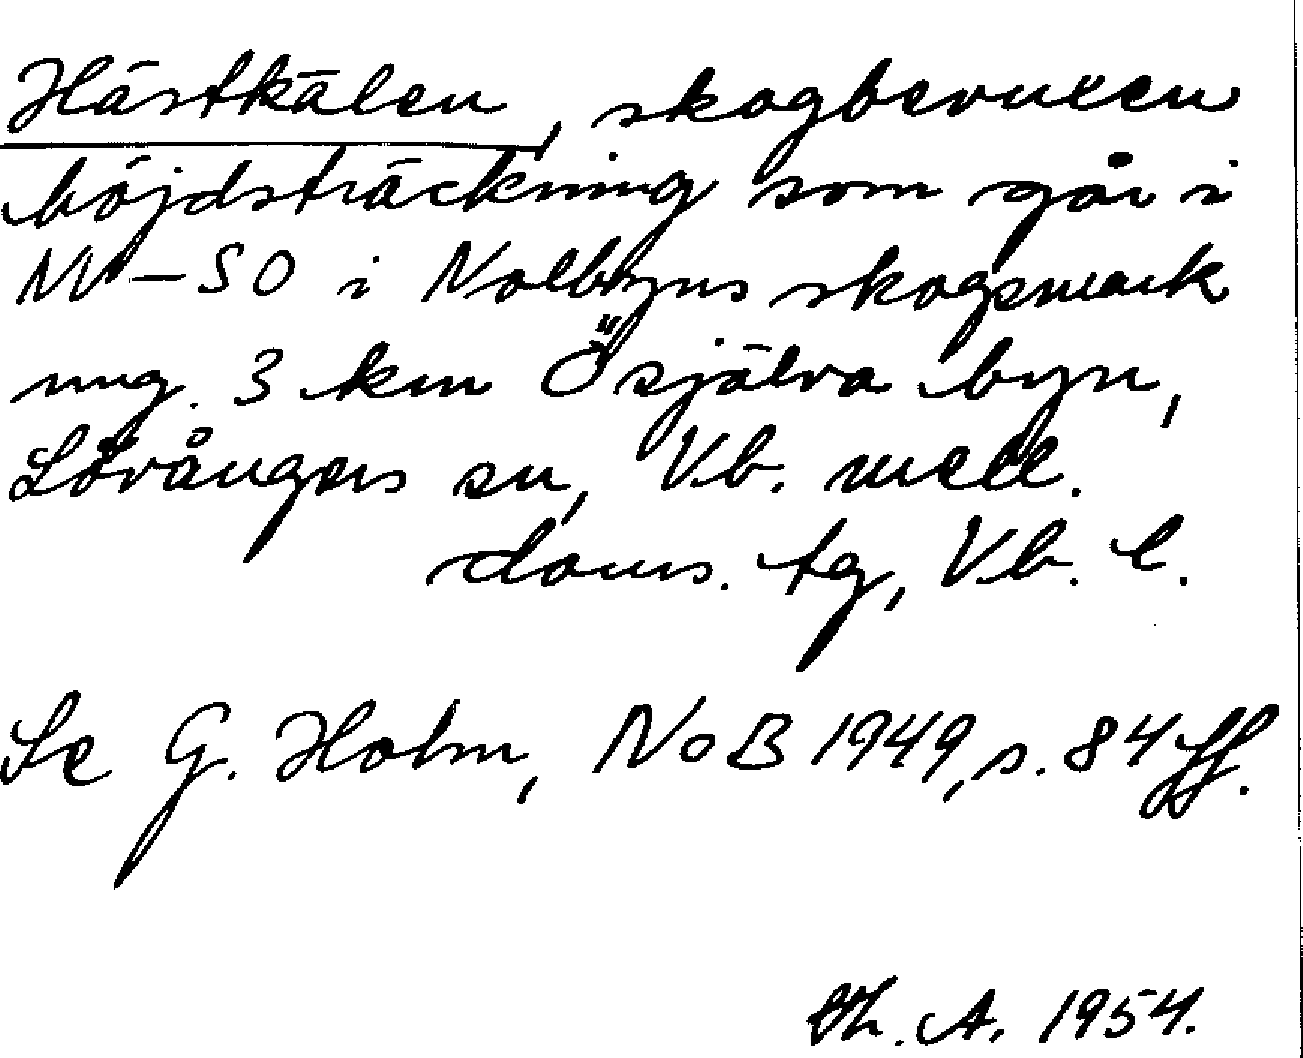 Hästkälen, skogbevuxen
höjdsträckning som går i
NV–SO i Nolbyns skogsmark
ung. 3 km Ö själva byn,
Lövångers sn, Vb. mell.
doms. tg, Vb. l.
Se G. Holm, NoB 1949, s. 84 ff.
Th. A. 1954.